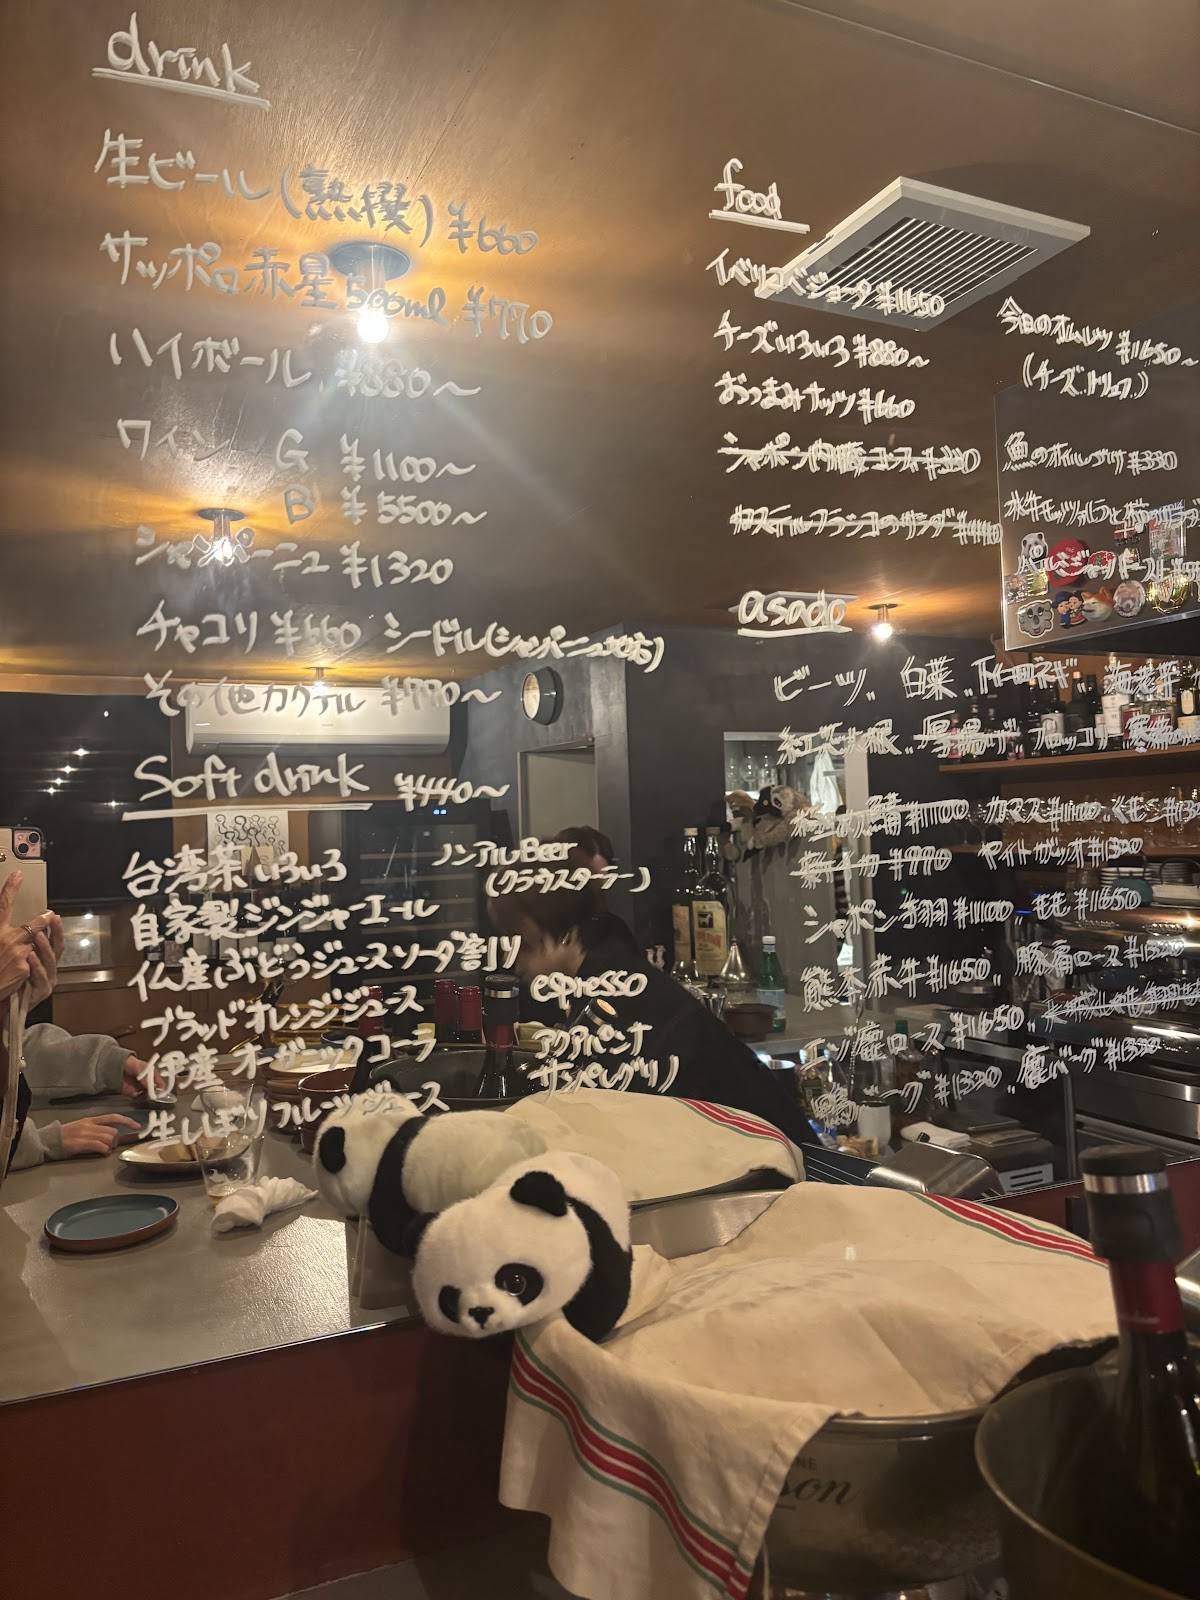 drink
生ビール(熟撰) ¥660
サッポロ赤星 500ml ¥770
ハイボール ¥880〜
ワイン G ¥1100〜
B ¥5500〜
シャンパーニュ ¥1320
チャコリ ¥660 シードル(シャンパーニュ地方)
その他カクテル ¥770〜
Soft drink ¥440〜
台湾茶いろいろ
自家製ジンジャーエール
仏産ぶどうジュースソーダ割り
ブラッドオレンジジュース
伊産オーガニックコーラ
生しぼりフルーツジュース
ノンアルBeer
(クラウスターラー)
espresso
アクアパンナ
サンペレグリノ
food
イベリコベジョータ ¥1650
チーズいろいろ ¥880〜
おつまみナッツ ¥660
シャポン内臓コンフィ
のサラダ
今日のオムレツ ¥1650〜
(チーズ、トリュフ)
魚のオイルづけ ¥330
水牛モッツァレラと
asado
ビーツ、白菜、下仁田ネギ、海老芋
紅芯大根、厚揚げ、ブロッコリ
¥1100 カマス ¥1100、
¥770 ヤイトガツオ ¥1320
シャポン手羽 ¥1100、モモ ¥1650
熊本赤牛 ¥1650、豚肩ロース ¥1320
エゾ鹿ロース ¥1650、
鴨バーグ ¥1320、鹿バーグ ¥1320
son